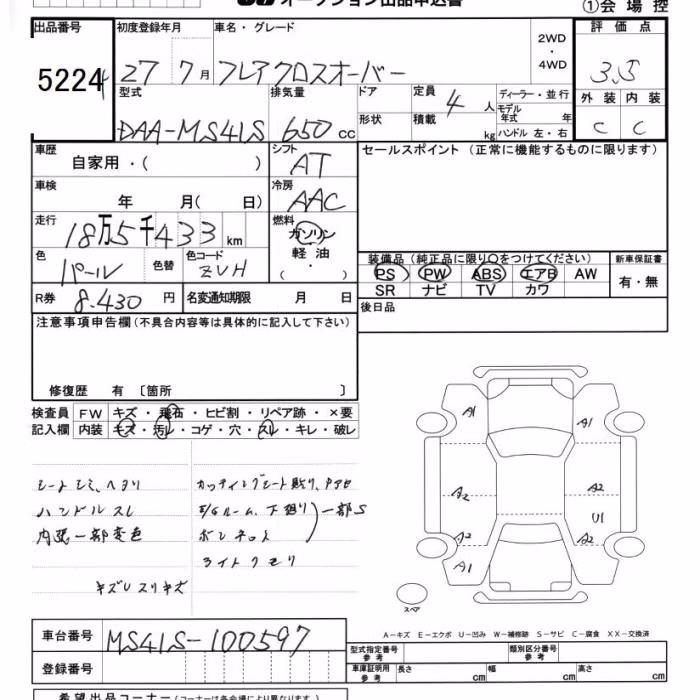 オークション出品申込書
①会場控
出品番号
5224
初度登録年月
27 7月
車名・グレード
フレアクロスオーバー
2WD・4WD
評価点
3.5
外装 内装
C C
型式
DAA-MS41S
排気量
650 cc
ドア
形状
定員
4 人
積載 kg
ディーラー・並行
モデル年式 年
ハンドル 左・右
車歴
自家用・( )
シフト
AT
セールスポイント (正常に機能するものに限ります)
車検
年 月( 日)
冷房
AAC
走行
18万5千433km
燃料
ガソリン
軽油
( ・ )
色
パール
色替
色コード
ZVH
装備品 (純正品に限り○をつけてください)
PS PW ABS エアB AW
SR ナビ TV カワ
新車保証書
有・無
R券
8.430 円
名変通知期限 月 日
後日品
注意事項申告欄 (不具合内容等は具体的に記入して下さい)
修復歴 有 〔箇所 〕
検査員記入欄
FW キズ・飛石・ヒビ割・リペア跡・×要
内装 キズ・汚レ・コゲ・穴・スレ・キレ・破レ
シートシミ、ヘタリ
ハンドルスレ
内張一部変色
キズUスリキズ
カッティングシート貼り、
下廻り 一部S
ボンネット
ライトクモリ
A1
A1
A2
A2
U1
A2
A2
A1
スペア
A−キズ E−エクボ U−凹み W−補修跡 S−サビ C−腐食 XX−交換済
車台番号
MS41S-100597
登録番号
型式指定番号 参考
類別区分番号 参考
車庫証明用 参考
長さ cm
幅 cm
高さ cm
希望出品コーナー (コーナーは各会場により異なります。)